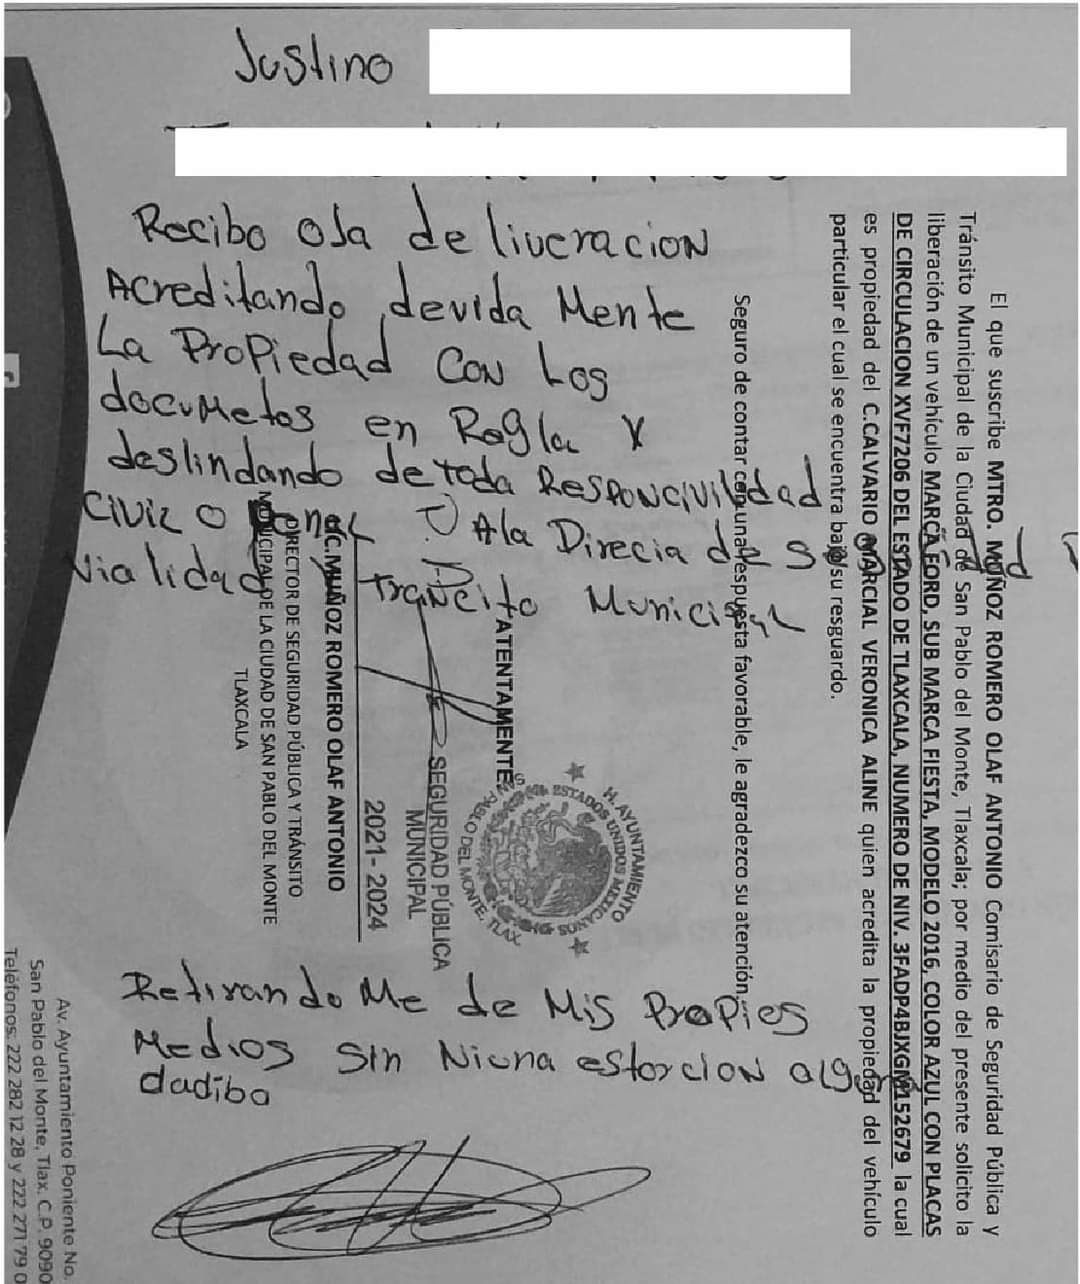 Justino
Recibo oja de liveracion
Acreditando devida Mente
La Propiedad Con Los
documetos en Regla y
deslindando de toda Responcivilidad
Civil o Penal Ala Direcia de
Vialidad y Trancito Municipal
Retirando Me de Mis Propies
Medios Sin Niuna estorcion alguna
dadiba
El que suscribe MTRO. MUÑOZ ROMERO OLAF ANTONIO Comisario de Seguridad Pública y
Tránsito Municipal de la Ciudad de San Pablo del Monte, Tlaxcala; por medio del presente solicito la
liberación de un vehículo MARCA FORD, SUB MARCA FIESTA, MODELO 2016, COLOR AZUL CON PLACAS
DE CIRCULACION XVF7206 DEL ESTADO DE TLAXCALA, NUMERO DE NIV. la cual
es propiedad del C.CALVARIO MARCIAL VERONICA ALINE quien acredita la propiedad del vehículo
particular el cual se encuentra bajo su resguardo.
Seguro de contar con una respuesta favorable, le agradezco su atención.
ATENTAMENTE
H. AYUNTAMIENTO
ESTADOS UNIDOS MEXICANOS
SAN PABLO DEL MONTE, TLAX.
SEGURIDAD PÚBLICA
MUNICIPAL
2021- 2024
C.MUÑOZ ROMERO OLAF ANTONIO
DIRECTOR DE SEGURIDAD PÚBLICA Y TRÁNSITO
MUNICIPAL DE LA CIUDAD DE SAN PABLO DEL MONTE
TLAXCALA
Av. Ayuntamiento Poniente No.
San Pablo del Monte, Tlax. C.P. 9090
Teléfonos: 222 282 12 28 y 222 271 79 0